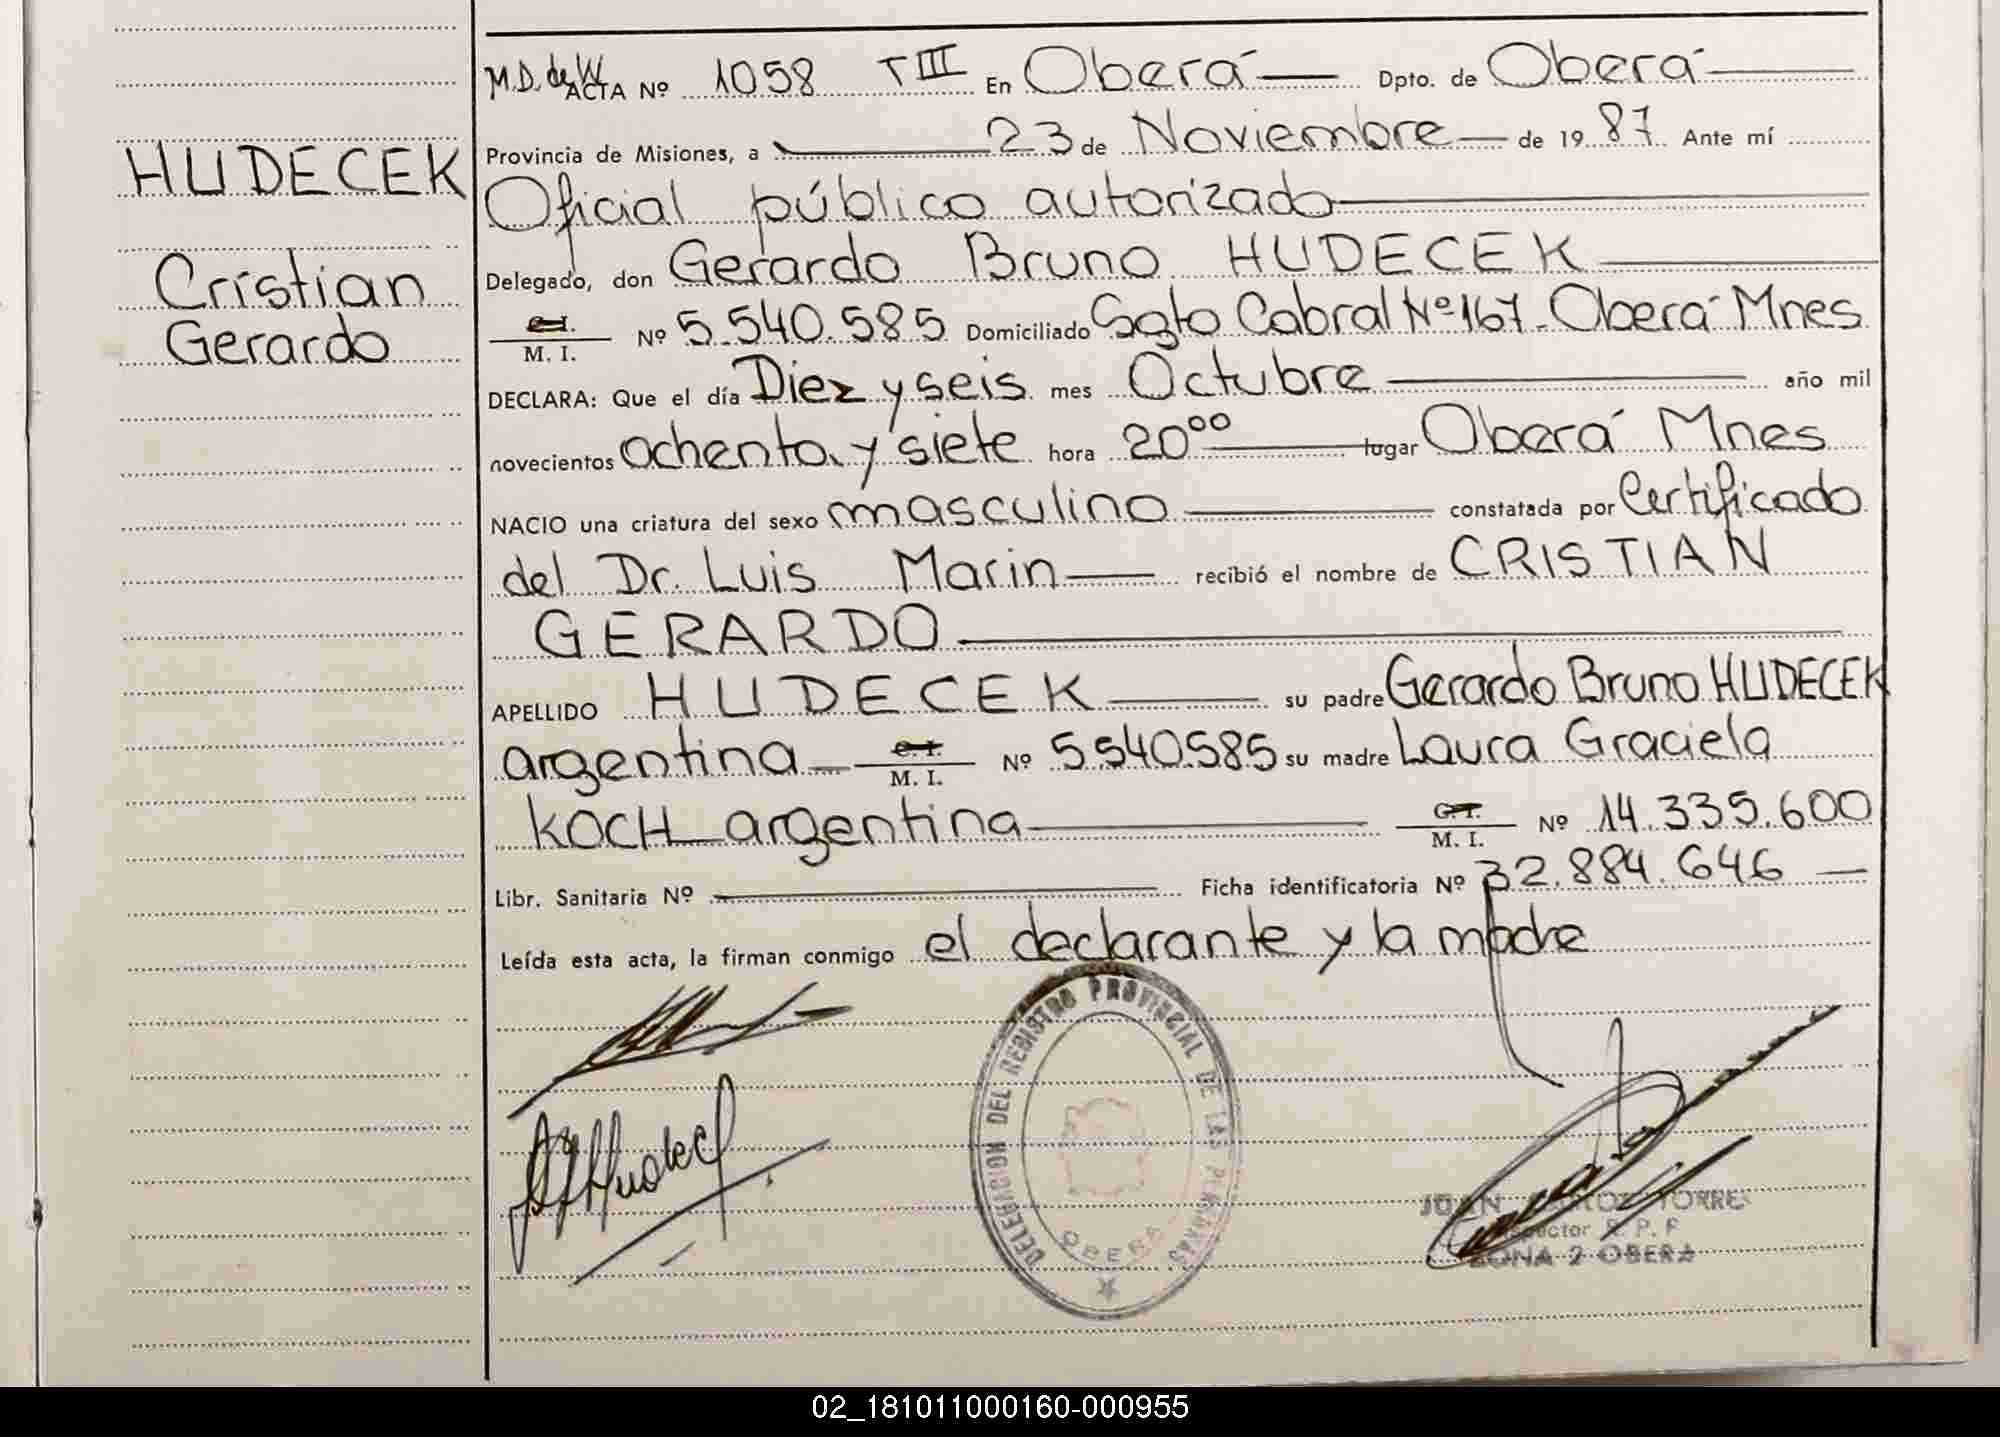 HUDECEK
Cristian
Gerardo
M.D. de W ACTA Nº 1058 T III En Oberá Dpto. de Oberá
Provincia de Misiones, a 23 de Noviembre de 19 87 Ante mí
Oficial público autorizado
Delegado, don Gerardo Bruno HUDECEK
C.I. M. I. Nº 5.540.585 Domiciliado Sgto Cabral Nº 167 - Oberá Mnes
DECLARA: Que el día Diez y seis mes Octubre año mil
novecientos ochenta y siete hora 20⁰⁰ lugar Oberá Mnes
NACIO una criatura del sexo masculino constatada por Certificado
del Dr. Luis Marin recibió el nombre de CRISTIAN
GERARDO
APELLIDO HUDECEK su padre Gerardo Bruno HUDECEK
argentina C.I. M. I. Nº 5.540.585 su madre Laura Graciela
KOCH argentina C.I. M. I. Nº 14.335.600
Libr. Sanitaria Nº Ficha identificatoria Nº 32.884.646
Leída esta acta, la firman conmigo el declarante y la madre
DELEGACION DEL REGISTRO PROVINCIAL DE LAS PERSONAS
OBERA
JUAN TORRES
Inspector R. P. P
ZONA 2 OBERA
02_181011000160-000955